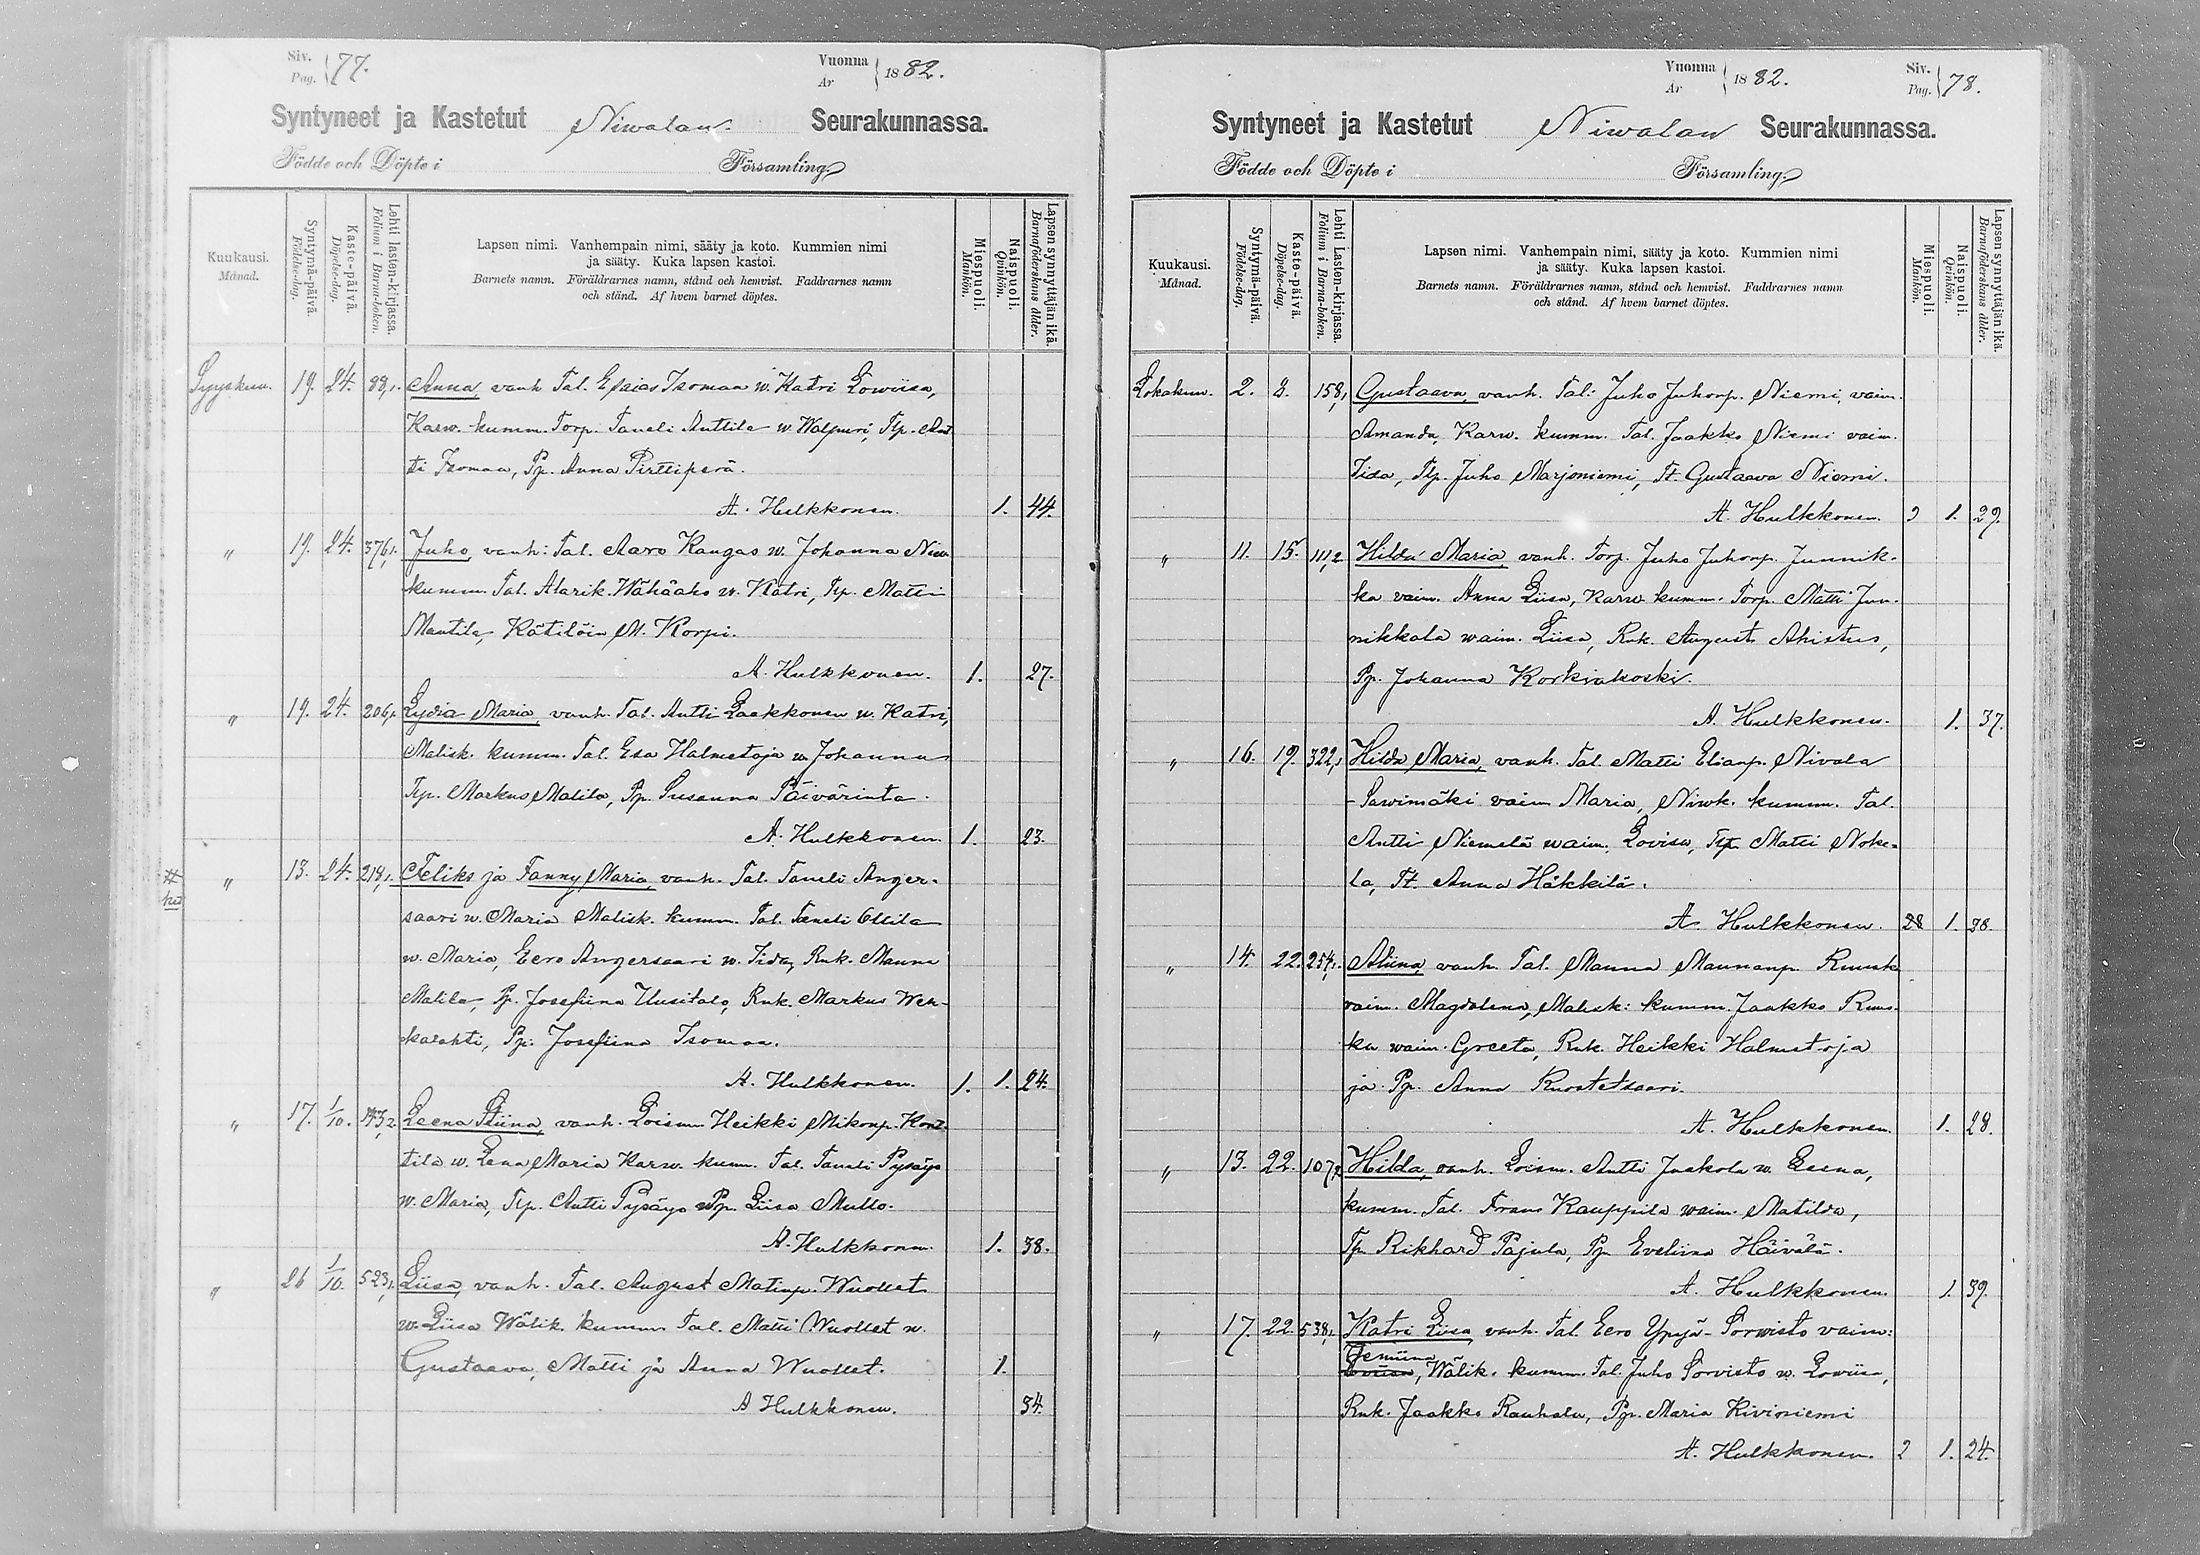 Siv. Pag. 77.
Vuonna År 1882.
Syntyneet ja Kastetut Niwalan Seurakunnassa.
Födde och Döpte i Församling.
Kuukausi. Månad.
Syntymä-päivä. Födelse-dag.
Kaste-päivä. Döpelse-dag.
Lehti lasten-kirjassa. Folium i Barna-boken.
Lapsen nimi. Vanhempain nimi, sääty ja koto. Kummien nimi
ja sääty. Kuka lapsen kastoi.
Barnets namn. Föräldrarnes namn, stånd och hemvist. Faddrarnes namn
och stånd. Af hvem barnet döptes.
Miespuoli. Mankön.
Naispuoli. Qvinkön.
Lapsen synnyttäjän ikä. Barnaföderskans ålder.
Syyskuu. 19. 24. 88,1. Anna, vanh. Tal. Esaias Isomaa w. Katri Lowiisa,
Karw. kumm. Torp. Taneli Anttila w. Walpuri, Tlp. Ant
ti Isomaa, Pp. Anna Pirttiperä.
A. Hulkkonen. 1. 44.
" 19. 24. 376,1. Juho, vanh: Tal. Aaro Kangas w. Johanna Niw.
kumm. Tal. Alarik Wähäaho w. Katri, Tlp. Matti
Mantila, Kätilöin M. Korpi.
A. Hulkkonen. 1. 27.
" 19. 24. 206,1. Lydia Maria, vanh. Tal. Antti Laakkonen w. Katri,
Malisk. kumm. Tal. Esa Halmetoja w. Johanna
Tlp. Markus Malila, Pp. Susanna Päivärinta.
A. Hulkkonen. 1. 23.
" 13. 24. 219,1. Feliks ja Fanny Maria, vanh. Tal. Taneli Anger-
saari w. Maria Malisk. kumm. Tal. Taneli Ollila
w. Maria, Eero Angersaari w. Iida, Rnk. Mauna
Malila, Pp. Josefiina Uusitalo, Rnk. Markus Wer-
kalahti, Pp. Josefiina Isomaa.
A. Hulkkonen. 1. 1. 24.
" 17. 1/10. Leena Stiina, vanh. Loisim. Heikki Mikonp. Kont-
tila w. Lena Maria Karw. kumm. Tal. Taneli Pysäys
w. Maria, Tlp. Antti Pysäys Pp. Liisa Mullo.
A. Hulkkonen. 1. 38.
" 26 1/10. 523,1. Liisa, vanh. Tal. August Matinp. Wuollet
w. Liisa Wälik. kumm Tal. Matti Wuollet w.
Gustaava, Matti ja Anna Wuollet. 1.
A Hulkkonen. 34.
Vuonna År 1882.
Siv. Pag. 78.
Syntyneet ja Kastetut Niwalan Seurakunnassa.
Födde och Döpte i Församling.
Kuukausi. Månad.
Syntymä-päivä. Födelse-dag.
Kaste-päivä. Döpelse-dag.
Lehti Lasten-kirjassa. Folium i Barna-boken.
Lapsen nimi. Vanhempain nimi, sääty ja koto. Kummien nimi
ja sääty. Kuka lapsen kastoi.
Barnets namn. Föräldrarnes namn, stånd och hemvist. Faddrarnes namn
och stånd. Af hvem barnet döptes.
Miespuoli. Mankön.
Naispuoli. Qvinkön.
Lapsen synnyttäjän ikä. Barnaföderskans ålder.
Lokakuu. 2. 8. 158,1 Gustaava, vanh. Tal: Juho Juhonp. Niemi, vaim.
Amanda, Karw. kumm. Tal. Jaakko Niemi vaim.
Iida, Tlp. Juho Marjoniemi, Tt. Gustaava Niemi.
A. Hulkkonen. 1. 29.
" 11. 15. 111,2 Hilda Maria, vanh. Torp. Juho Juhonp. Junnik-
ka vaim. Anna Liisa, Karw. kumm. Torp. Matti Jun-
nikkala waim. Liisa, Rnk. August Ahistus,
Pp. Johanna Korkiakoski.
A. Hulkkonen. 1. 37.
" 16. 19. 322,1 Hilda Maria, vanh. Tal. Matti Elianp. Nivala
-Sawimäki vaim Maria, Niwk. kumm. Tal.
Antti Niemelä waim. Lovisa, Tlp. Matti Noke-
la, Tt. Anna Häkkilä.
A. Hulkkonen. 28 1. 38.
" 14. 22. 254,1. Aliina, vanh. Tal. Mauna Maunanp. Ruuska
vaim. Magdalena, Malisk: kumm. Jaakko Ruus-
ka waim. Greeta, Rnk. Heikki Halmetoja
ja Pp. Anna Ruostetsaari.
A. Hulkkonen. 1. 28.
" 13. 22. 107,2 Hilda, vanh. Loisim. Antti Jaakola w. Leena,
kumm. Tal. Frans Kauppila waim. Matilda,
Tp. Rikhard Pajula, Pp. Eveliina Häivälä.
A. Hulkkonen. 1. 39.
" 17. 22. 538,1 Katri Liisa, vanh. Tal. Eero Ypyä-Sorwisto vaim:
Jemiina
Lovisa, Wälik. kumm. Tal. Juho Sorvisto w. Lowiisa,
Rnk. Jaakko Rauhala, Pp. Maria Kiviniemi
A. Hulkkonen. 2 1. 24.